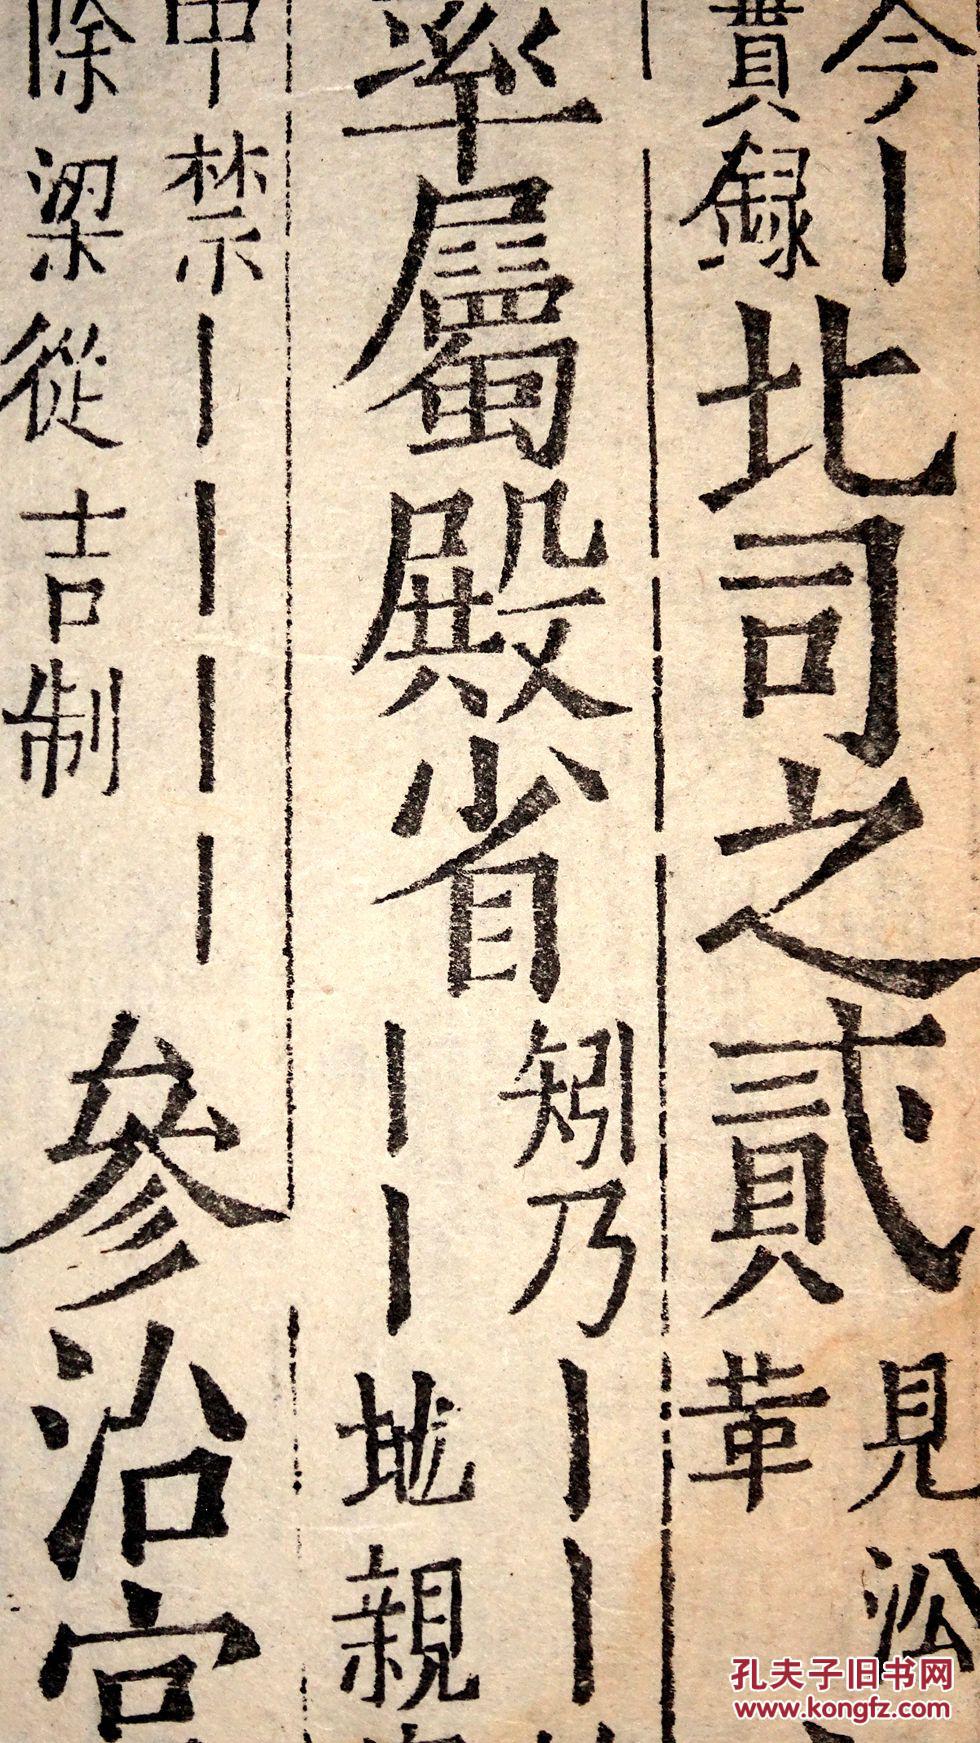 今丨
錄
北司之貳
見㳂
革
率屬殿省
矧乃丨丨
丨丨地親
禁丨丨丨丨
除梁從吉制
參沿官
孔夫子旧书网
www.kongfz.com